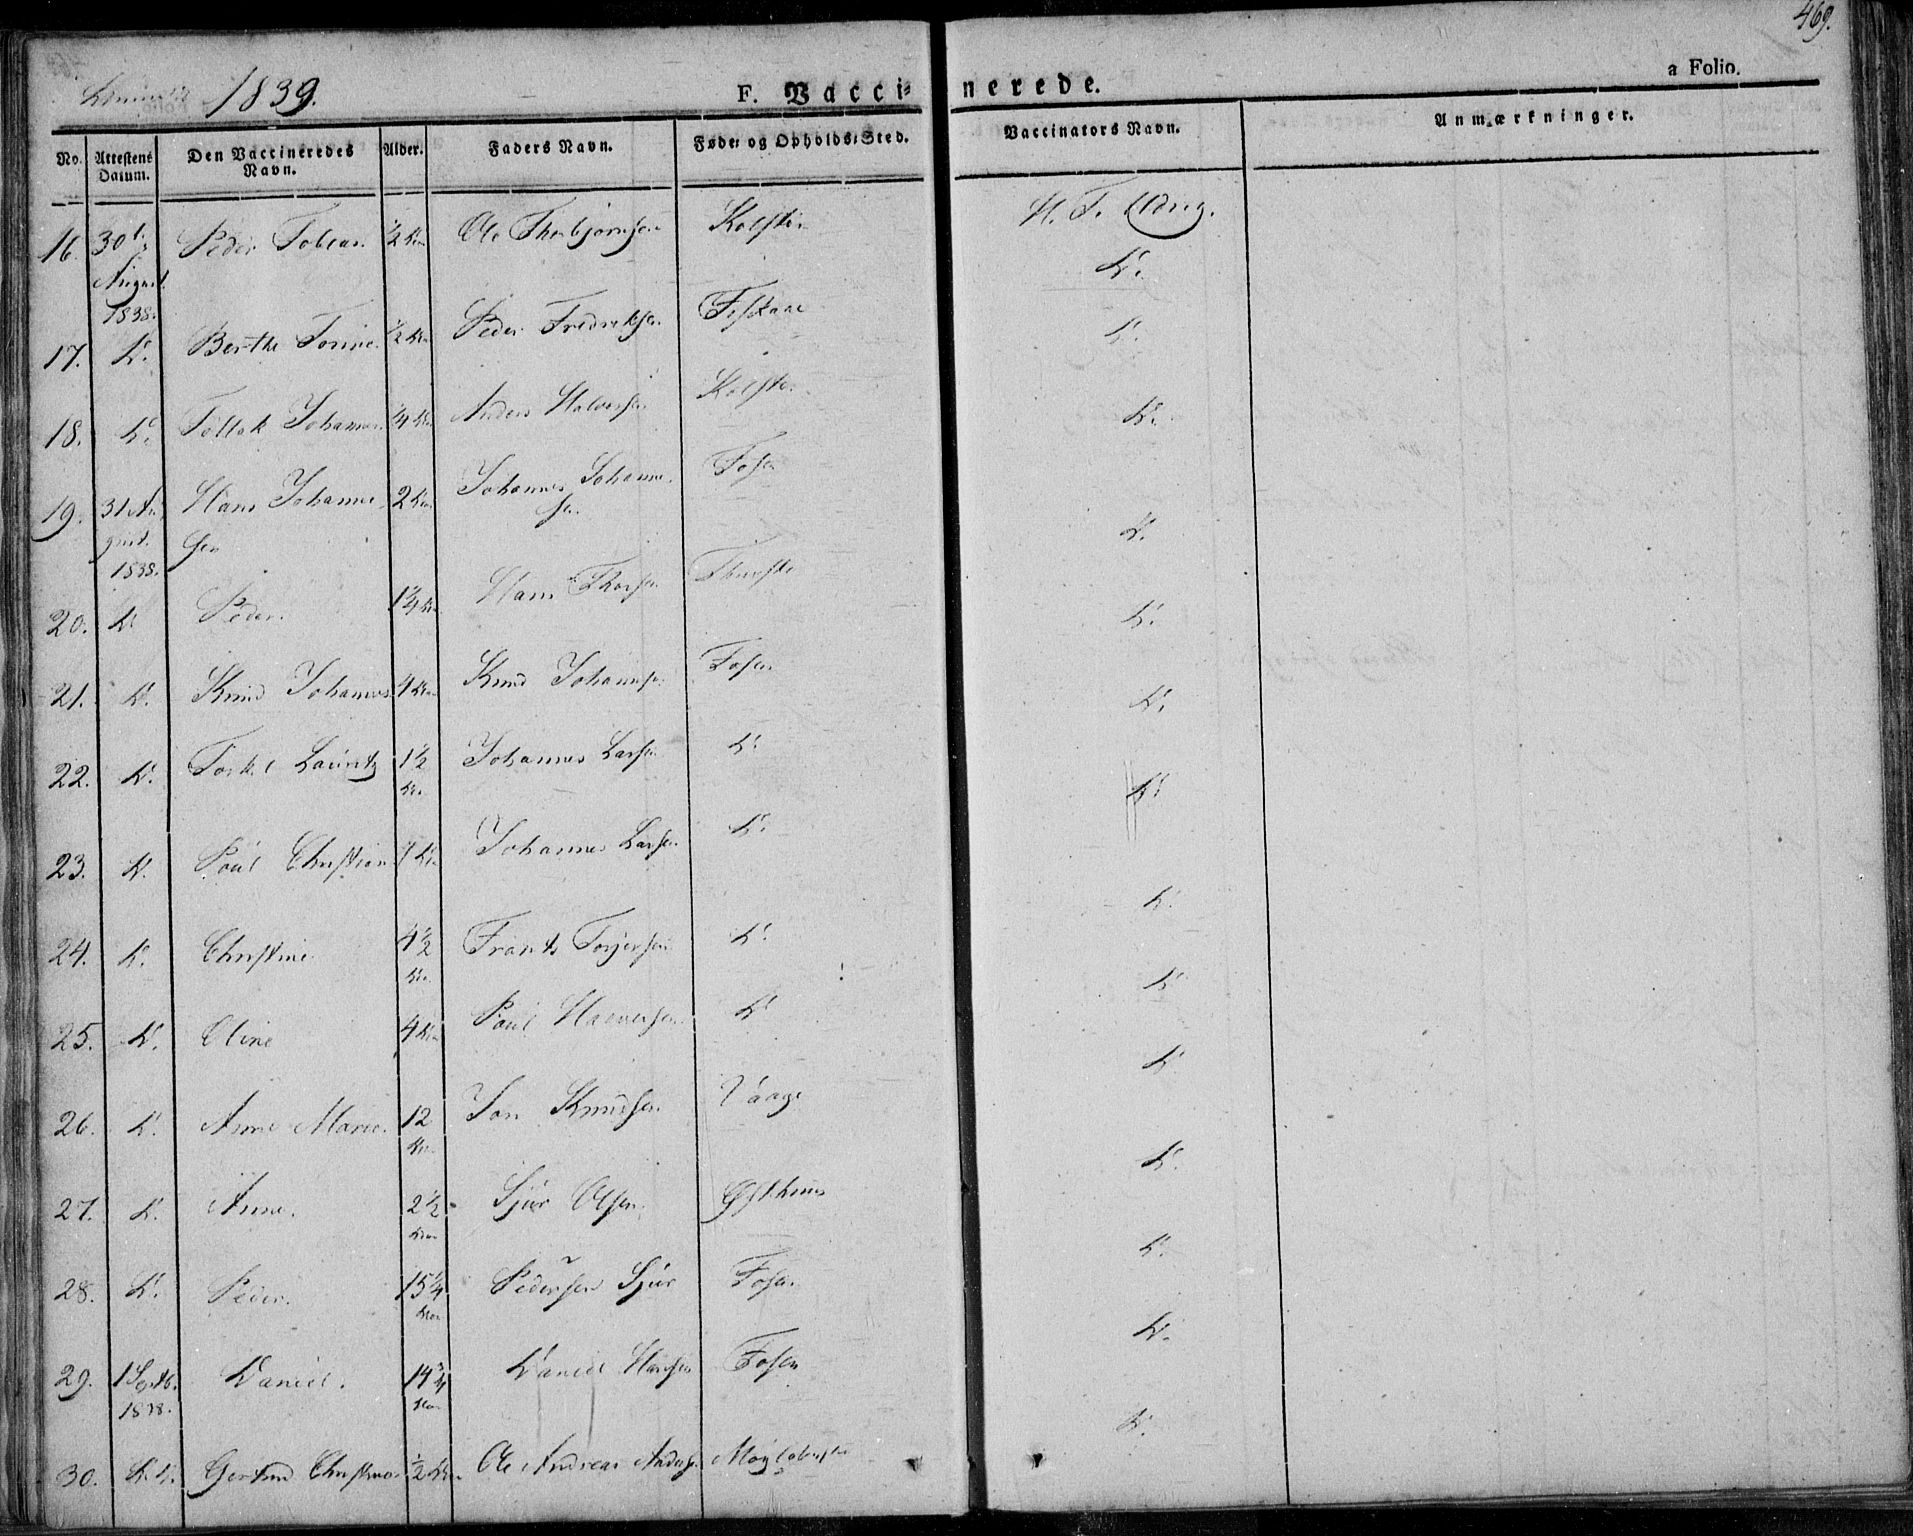 469.
1839.
F. Vaccinerede.
a Folio.
No. Attestens Datum. Den Vaccineredes Navn. Alder. Faders Navn. Føde- og Opholds-Sted. Vaccinators Navn. Anmærkninger.
16. 30t August 1838. Peder Tobias. 1/2 Ole Thorbjørnsen Kolstø.
D.
17. D. Berthe Torine. 1/2 Peder Fredriksen Fiskaae D.
18. D. Tollak Johannes. 1/4 Anders Halvorsen Kolstø. D.
19. 31 August. 1838. Hans Johannesen 2 Johannes Johannesen Fosen D.
20. D. Peder. Hans Thorsen D.
21. D. Knud Johannes 4 Knud Johannesen Fosen D.
22. D. Torkel Lauritz 1 1/2 Johannes Larsen D. D.
23. D. Poul Christian 7 Johannes Larsen D. D.
24. D. Christine 4 1/2 Frants Torjersen D. D.
25. D. Oline 4 Poul Halvorsen D. D.
26. D. Anne Marie. 12 Jon Knudsen Vaage D.
27. D. Anne. 2 1/2 Sjur Olsen. Østhuus D.
28. D. Peder. 15 1/4 Pedersen Sjur Fosen D.
29. 1 Septb. 1838. Daniel. 14 3/4 Daniel Hansen Fosen D.
30. D. Gertrud Christine 1/2 Ole Andreas